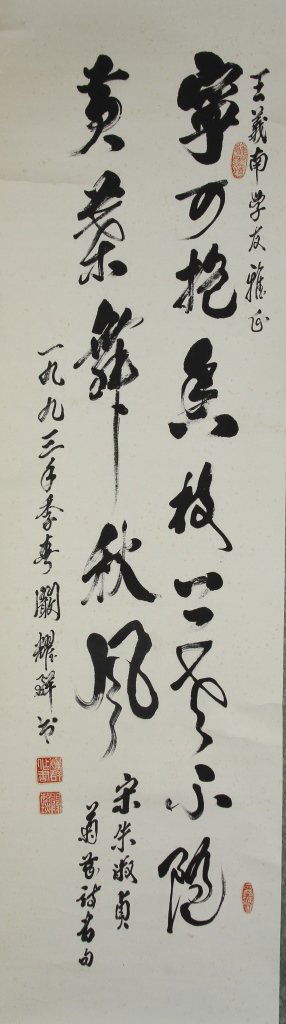 王義南学友雅正
寧可抱香枝上老不隨
黄葉舞秋风
宋朱淑貞
菊花诗句
一九九三年季春闞耀辉书